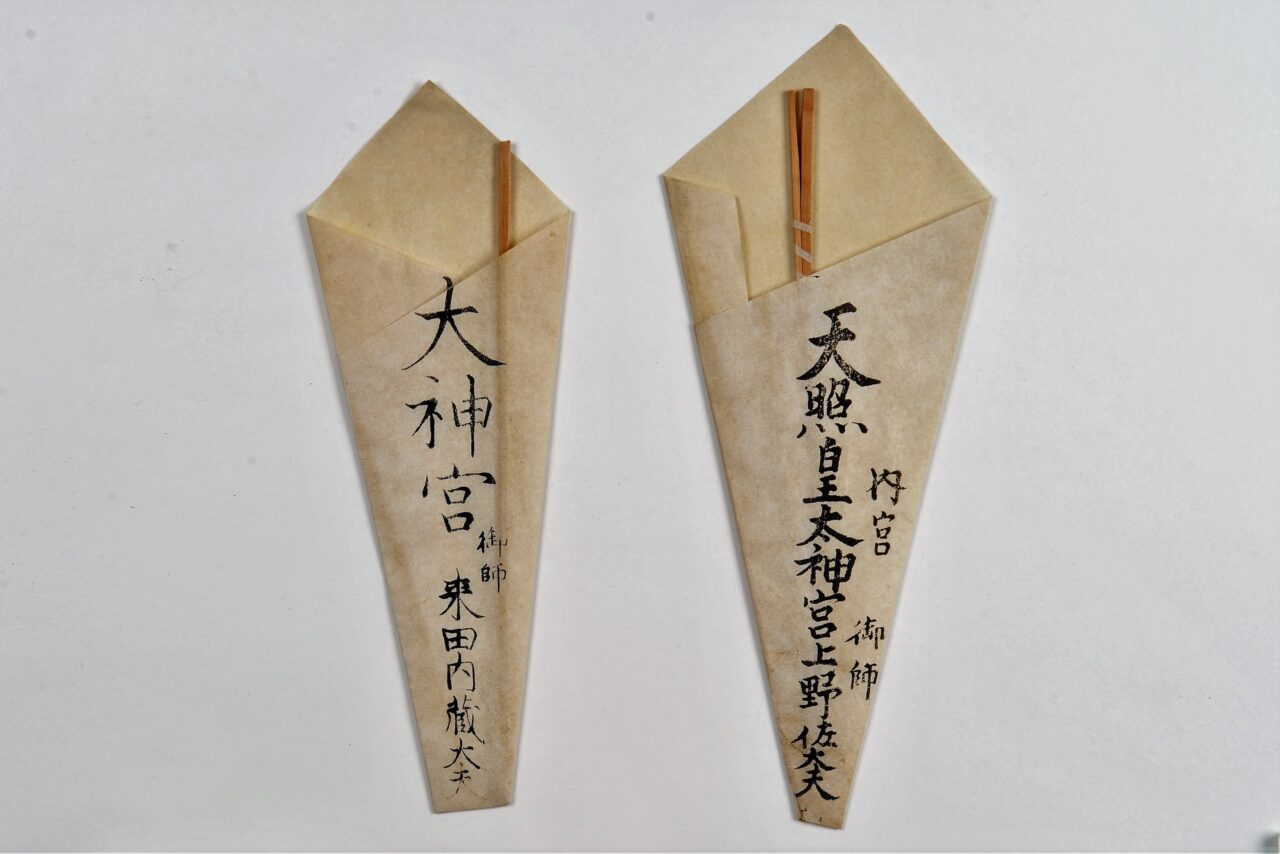 内宮
御師
天照皇太神宮上野佐大夫
御師
大神宮来田内蔵大夫